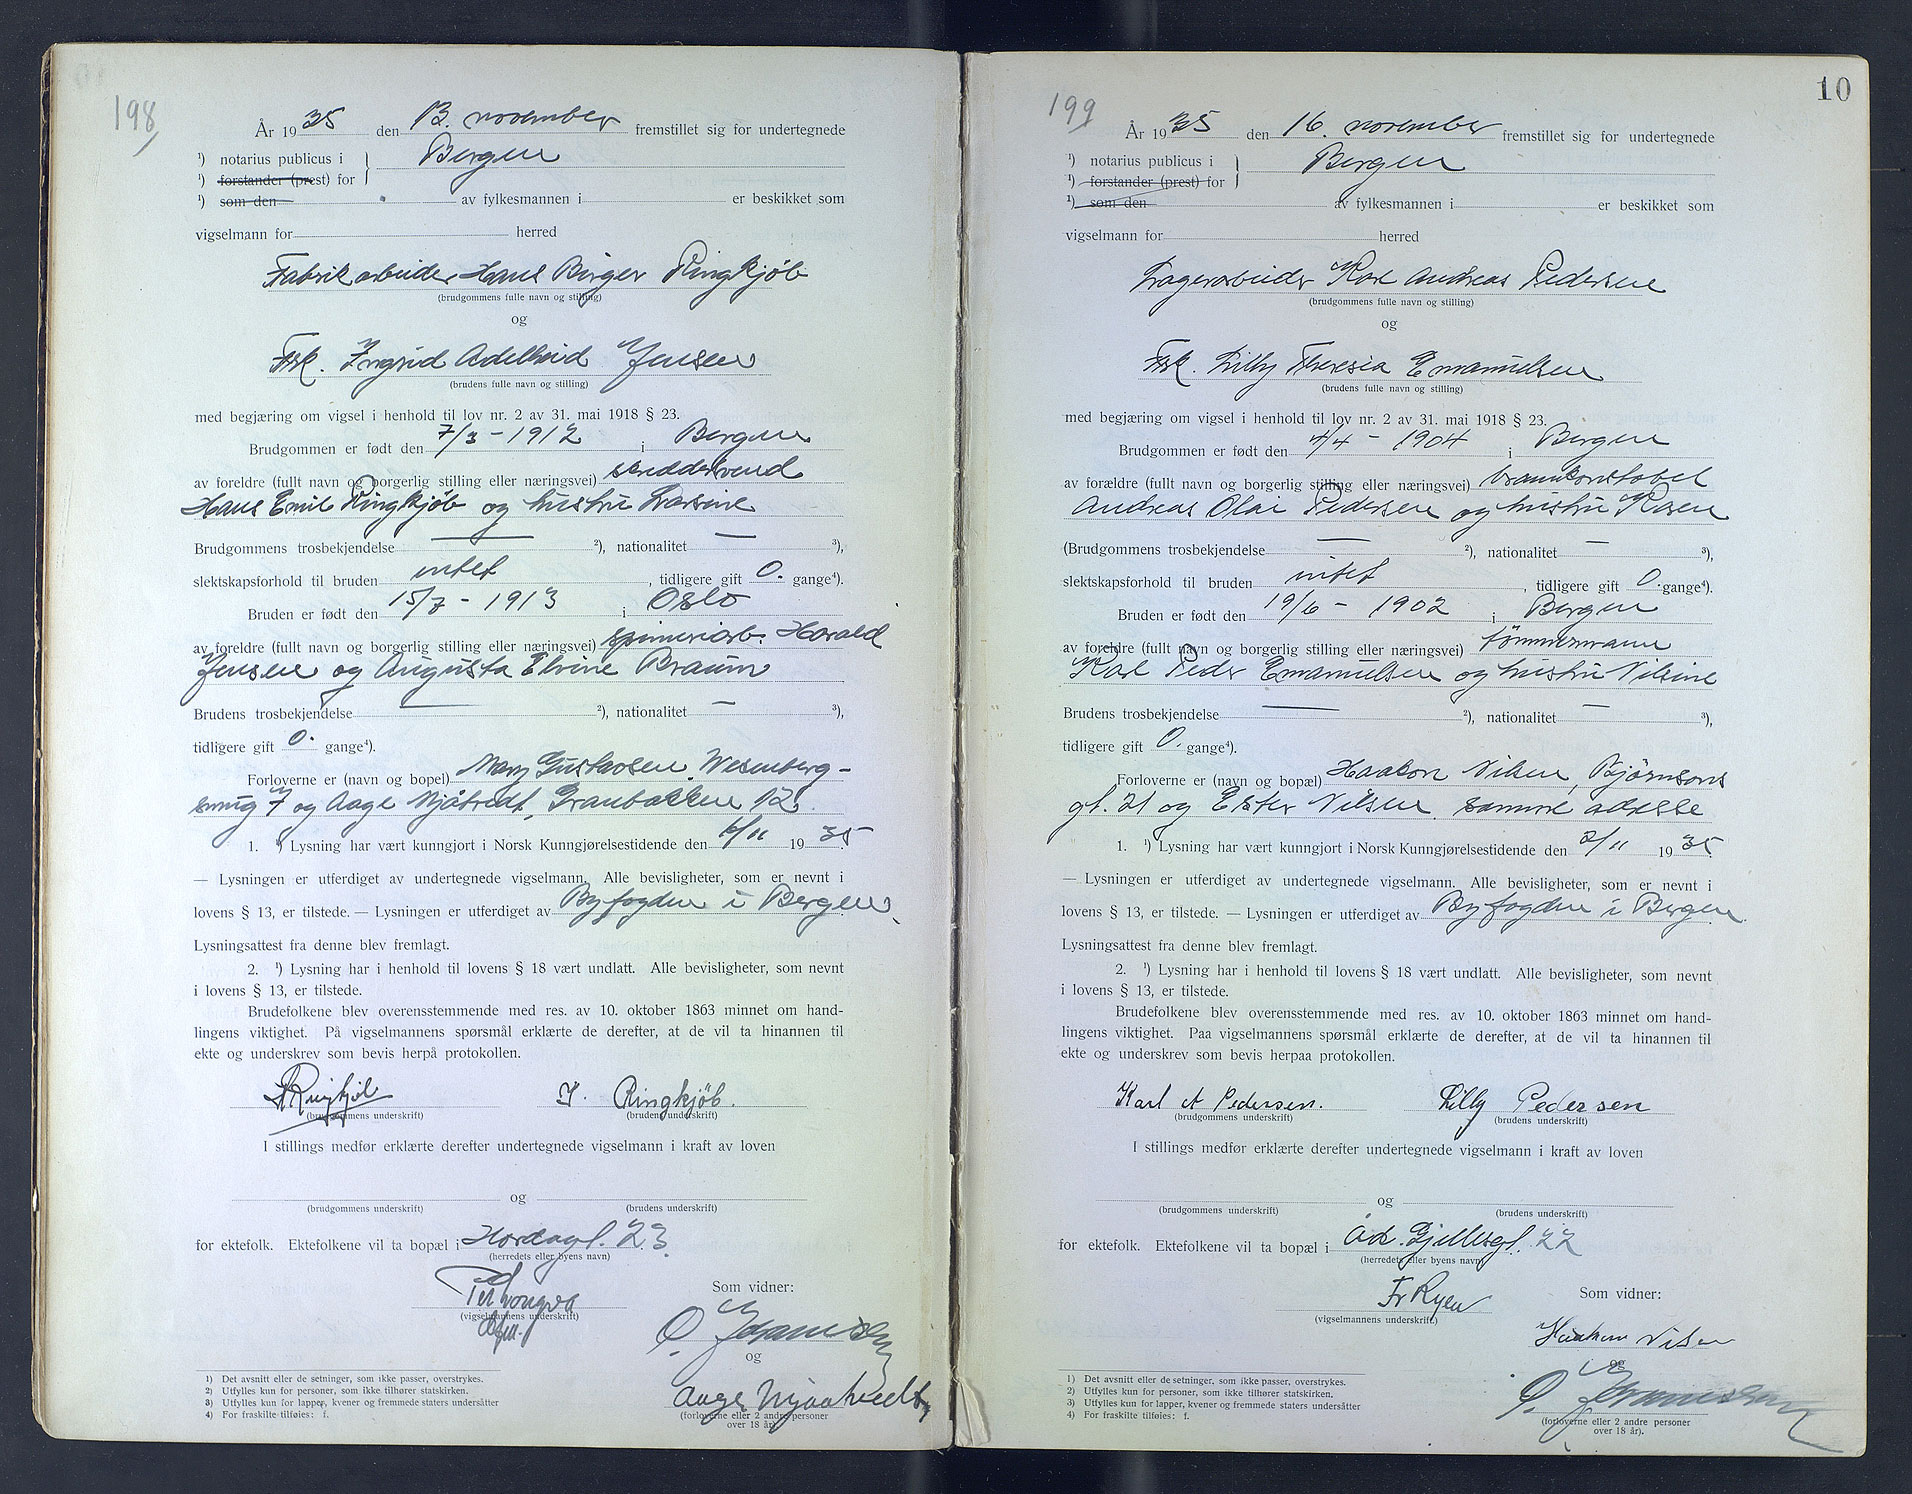 198
År 1935 den 13. november fremstillet sig for undertegnede
¹) notarius publicus i } Bergen
¹) forstander (prest) for
¹) som den av fylkesmannen i er beskikket som
vigselmann for herred
Fabrikarbeider Hans Birger Ringkjöb
(brudgommens fulle navn og stilling)
og
Frk. Ingrid Adelheid Jensen
(brudens fulle navn og stilling)
med begjæring om vigsel i henhold til lov nr. 2 av 31. mai 1918 § 23.
Brudgommen er født den 7/3 - 1912 i Bergen
av foreldre (fullt navn og borgerlig stilling eller næringsvei) skreddersvend
Hans Emil Ringkjöb og hustru Larsine
Brudgommens trosbekjendelse — ²), nationalitet — ³),
slektskapsforhold til bruden intet, tidligere gift 0. gange⁴).
Bruden er født den 15/7 - 1913 i Oslo
av foreldre (fullt navn og borgerlig stilling eller næringsvei) spinneriarb. Harald
Jensen og Augusta Elvine Braum
Brudens trosbekjendelse — ²), nationalitet — ³),
tidligere gift 0. gange⁴).
Forloverne er (navn og bopel) Mary Gustavsen, Wesenberg-
smug 7 og Aage Mjåtvedt, Granbakken 12.
1. ¹) Lysning har vært kunngjort i Norsk Kunngjørelsestidende den 6/11 1935
— Lysningen er utferdiget av undertegnede vigselmann. Alle bevisligheter, som er nevnt i
lovens § 13, er tilstede. — Lysningen er utferdiget av Byfogden i Bergen.
Lysningsattest fra denne blev fremlagt.
2. ¹) Lysning har i henhold til lovens § 18 vært undlatt. Alle bevisligheter, som nevnt
i lovens § 13, er tilstede.
Brudefolkene blev overensstemmende med res. av 10. oktober 1863 minnet om hand-
lingens viktighet. På vigselmannens spørsmål erklærte de derefter, at de vil ta hinannen til
ekte og underskrev som bevis herpå protokollen.
H Ringkjöb I. Ringkjöb.
(brudgommens underskrift) (brudens underskrift)
I stillings medfør erklærte derefter undertegnede vigselmann i kraft av loven
og
(brudgommens underskrift) (brudens underskrift)
for ektefolk. Ektefolkene vil ta bopæl i Hordagt. 23
(herredets eller byens navn)
Som vidner:
(vigselmannens underskrift)
O. Johannesen
og
Aage Mjaatvedt
(forloverne eller 2 andre personer
over 18 år).
1) Det avsnitt eller de setninger, som ikke passer, overstrykes.
2) Utfylles kun for personer, som ikke tilhører statskirken.
3) Utfylles kun for lapper, kvener og fremmede staters undersåtter
4) For fraskilte tilføies: f.
10
199
År 1935 den 16. november fremstillet sig for undertegnede
¹) notarius publicus i } Bergen
¹) forstander (prest) for
¹) som den av fylkesmannen i er beskikket som
vigselmann for herred
Lagerarbeider Karl Andreas Pedersen
(brudgommens fulle navn og stilling)
og
Frk. Lilly Theresia Emanuelsen
(brudens fulle navn og stilling)
med begjæring om vigsel i henhold til lov nr. 2 av 31. mai 1918 § 23.
Brudgommen er født den 4/4 - 1904 i Bergen
av forældre (fullt navn og borgerlig stilling eller næringsvei) brannkonstabel
Andreas Olai Pedersen og hustru Karen
(Brudgommens trosbekjendelse — ²), nationalitet — ³),
slektskapsforhold til bruden intet, tidligere gift 0. gange⁴).
Bruden er født den 19/6 - 1902 i Bergen
av foreldre (fullt navn og borgerlig stilling eller næringsvei) tömmermann
Karl Peder Emanuelsen og hustru Nilsine
Brudens trosbekjendelse — ²), nationalitet — ³),
tidligere gift 0. gange⁴).
Forloverne er (navn og bopæl) Haakon Nilsen, Björnsons
gt. 21 og Ester Nilsen samme adresse
1. ¹) Lysning har vært kunngjort i Norsk Kunngjørelsestidende den 2/11 1935.
— Lysningen er utferdiget av undertegnede vigselmann. Alle bevisligheter, som er nevnt i
lovens § 13, er tilstede. — Lysningen er utferdiget av Byfogden i Bergen.
Lysningsattest fra denne blev fremlagt.
2. ¹) Lysning har i henhold til lovens § 18 vært undlatt. Alle bevisligheter, som nevnt
i lovens § 13, er tilstede.
Brudefolkene blev overensstemmende med res. av 10. oktober 1863 minnet om hand-
lingens viktighet. Paa vigselmannens spørsmål erklærte de derefter, at de vil ta hinannen til
ekte og underskrev som bevis herpaa protokollen.
Karl A Pedersen. Lilly Pedersen
(brudgommens underskrift) (brudens underskrift)
I stillings medfør erklærte derefter undertegnede vigselmann i kraft av loven
og
(brudgommens underskrift) (brudens underskrift)
for ektefolk. Ektefolkene vil ta bopæl i Ad. Gjellesgt. 22
(herredets eller byens navn)
Fr Ryen Som vidner:
(vigselmannens underskrift)
Haakon Nilsen
og
O. Johannesen
(forloverne eller 2 andre personer
over 18 år).
1) Det avsnitt eller de setninger, som ikke passer, overstrykes.
2) Utfylles kun for personer, som ikke tilhører statskirken.
3) Utfylles kun for lapper, kvener og fremmede staters undersåtter
4) For fraskilte tilføies: f.